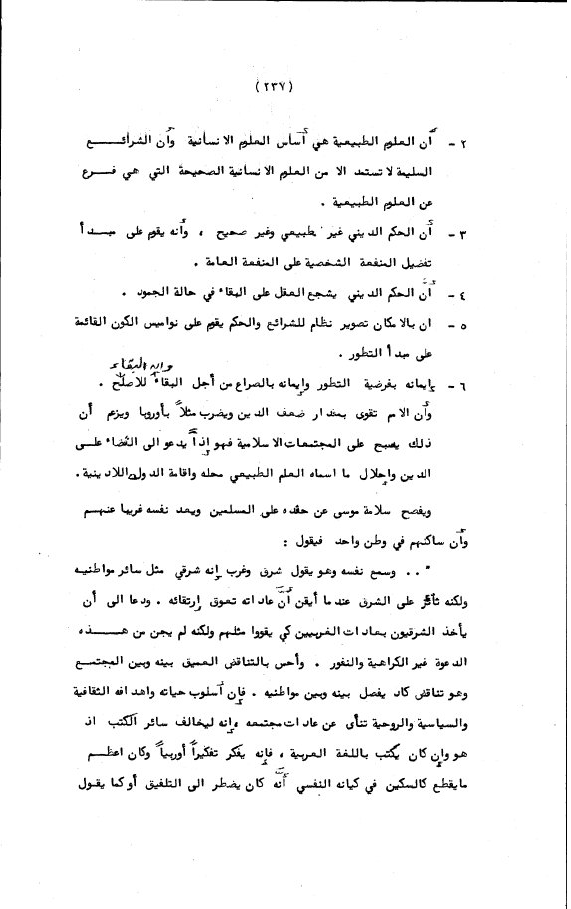 (٢٣٧)
٢ - أن العلوم الطبيعية هي أساس العلوم الانسانية وأن الشرائــــــع
السليمة لا تستمد الا من العلوم الانسانية الصحيحة التي هي فــرع
عن العلوم الطبيعية .
٣ - أن الحكم الديني غير طبيعي وغير صحيح ، وأنه يقوم على مبــدأ
تفضيل المنفعة الشخصية على المنفعة العامة .
٤ - أن الحكم الديني يشجع العقل على البقاء في حالة الجمود .
٥ - ان بالامكان تصوير نظام للشرائع والحكم يقوم على نواميس الكون القائمة
على مبدأ التطور .
وان البقاء
٦ - إيمانه بفرضية التطور وإيمانه بالصراع من أجل البقاء للأصلح .
وأن الامم تقوى بمقدار ضعف الدين ويضرب مثلاً بأوروبا ويزعم أن
ذلك يصبح على المجتمعات الاسلامية فهو إذاً يدعو الى القضاء علــى
الدين وإحلال ما اسماه العلم الطبيعي محله واقامة الدول اللادينية .
ويفصح سلامة موسى عن حقده على المسلمين ويعد نفسه غريبا عنهــم
وأن ساكنهم في وطن واحد فيقول :
" . . وسمع نفسه وهو يقول شرق وغرب إنه شرقي مثل سائر مواطنيــه
ولكنه ثائر على الشرق عندما أيقن أنّ عاداته تعوق إرتقائه . ودعا الى أن
يأخذ الشرقيون بعادات الغربيين كي يقووا مثلهم ولكنه لم يجن من هـــــذه
الدعوة غير الكراهية والنفور . وأحس بالتناقض العميق بينه وبين المجتمــع
وهو تناقض كاد يفصل بينه وبين مواطنيه . فإن أسلوب حياته واهدافه الثقافية
والسياسية والروحية تنأى عن عادات مجتمعه وإنه ليخالف سائر الكتب اذ
هو وإن كان يكتب باللغة العربية ، فإنه يفكر تفكيراً أوربياً وكان اعظــم
مايقطع كالسكين في كيانه النفسي أنّه كان يضطر الى التلفيق أو كما يقول